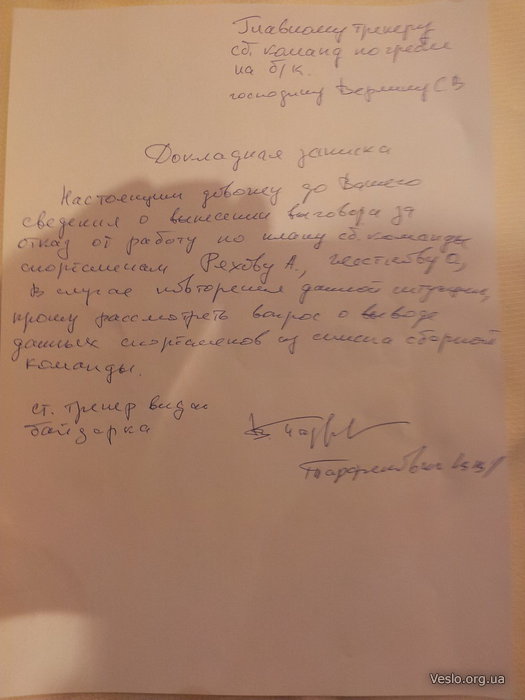 Главному тренеру
сб. команд по гребле
на б/к.
господину Дермину СВ
Докладная записка
Настоящим довожу до Вашего
сведения о вынесении выговора за
отказ от работу по плану сб. команды
спортсменам А., О,
в случае повторения данной ситуации,
прошу рассмотреть вопрос о выводе
данных спортсменов из списка сборной
команды.
ст. тренер вида
байдарка
Veslo.org.ua